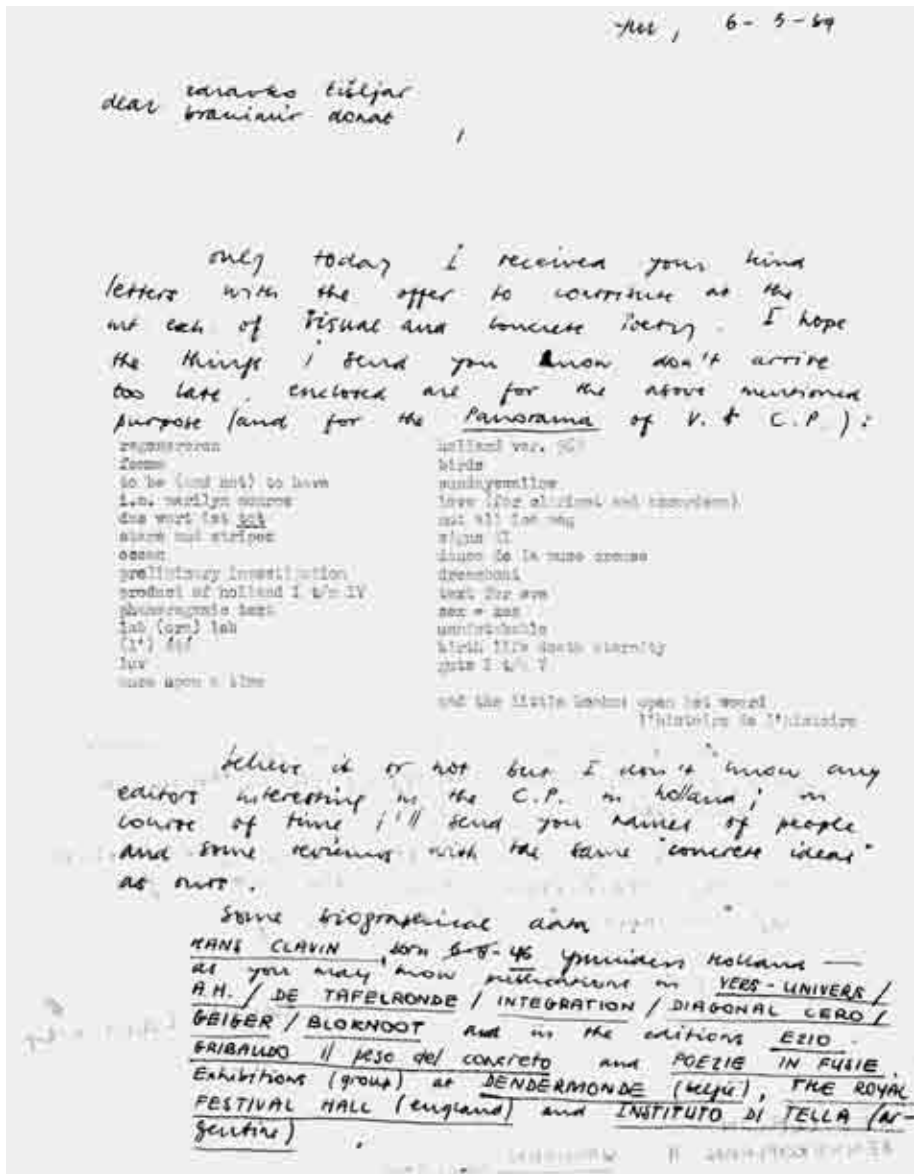 6-5-69
dear zdravko tišljar
branimir donat
,
only today I received your kind
letters with the offer to contribute at the
of Visual and Concrete Poetry. I hope
the things i send you know don't arrive
too late. enclosed are for the above mentioned
purpose (and for the Panorama of V. & C.P.):
holland var.
femme
birds
to be (and not) to have
i.m. marilyn monroe
das wort ist tot
stars and stripes
ocean
danse de la muse
preliminary investigation
product of holland I t/m IV
text for eve
text
sex = zes
lab (oro) lab
birth life death eternity
luv
guts I t/m V
once upon a time
and the little books: open het woord
l'histoire de l'histoire
believe it or not but I don't know any
editors interesting in the C.P. in holland; in
course of time i'll send you names of people
and some reviews with the same "concrete ideas"
as ours".
some biographical data
HANS CLAVIN, born 6-8-46 ymuiden Holland —
as you may know publications in VERS-UNIVERS /
A.H. / DE TAFELRONDE / INTEGRATION / DIAGONAL CERO /
GEIGER / BLOKNOOT and in the editions EZIO
GRIBAUDO il peso del concreto and POEZIE IN FUSIE.
Exhibitions (group) at DENDERMONDE (belgie), THE ROYAL
FESTIVAL HALL (england) and INSTITUTO DI TELLA (ar-
gentine).